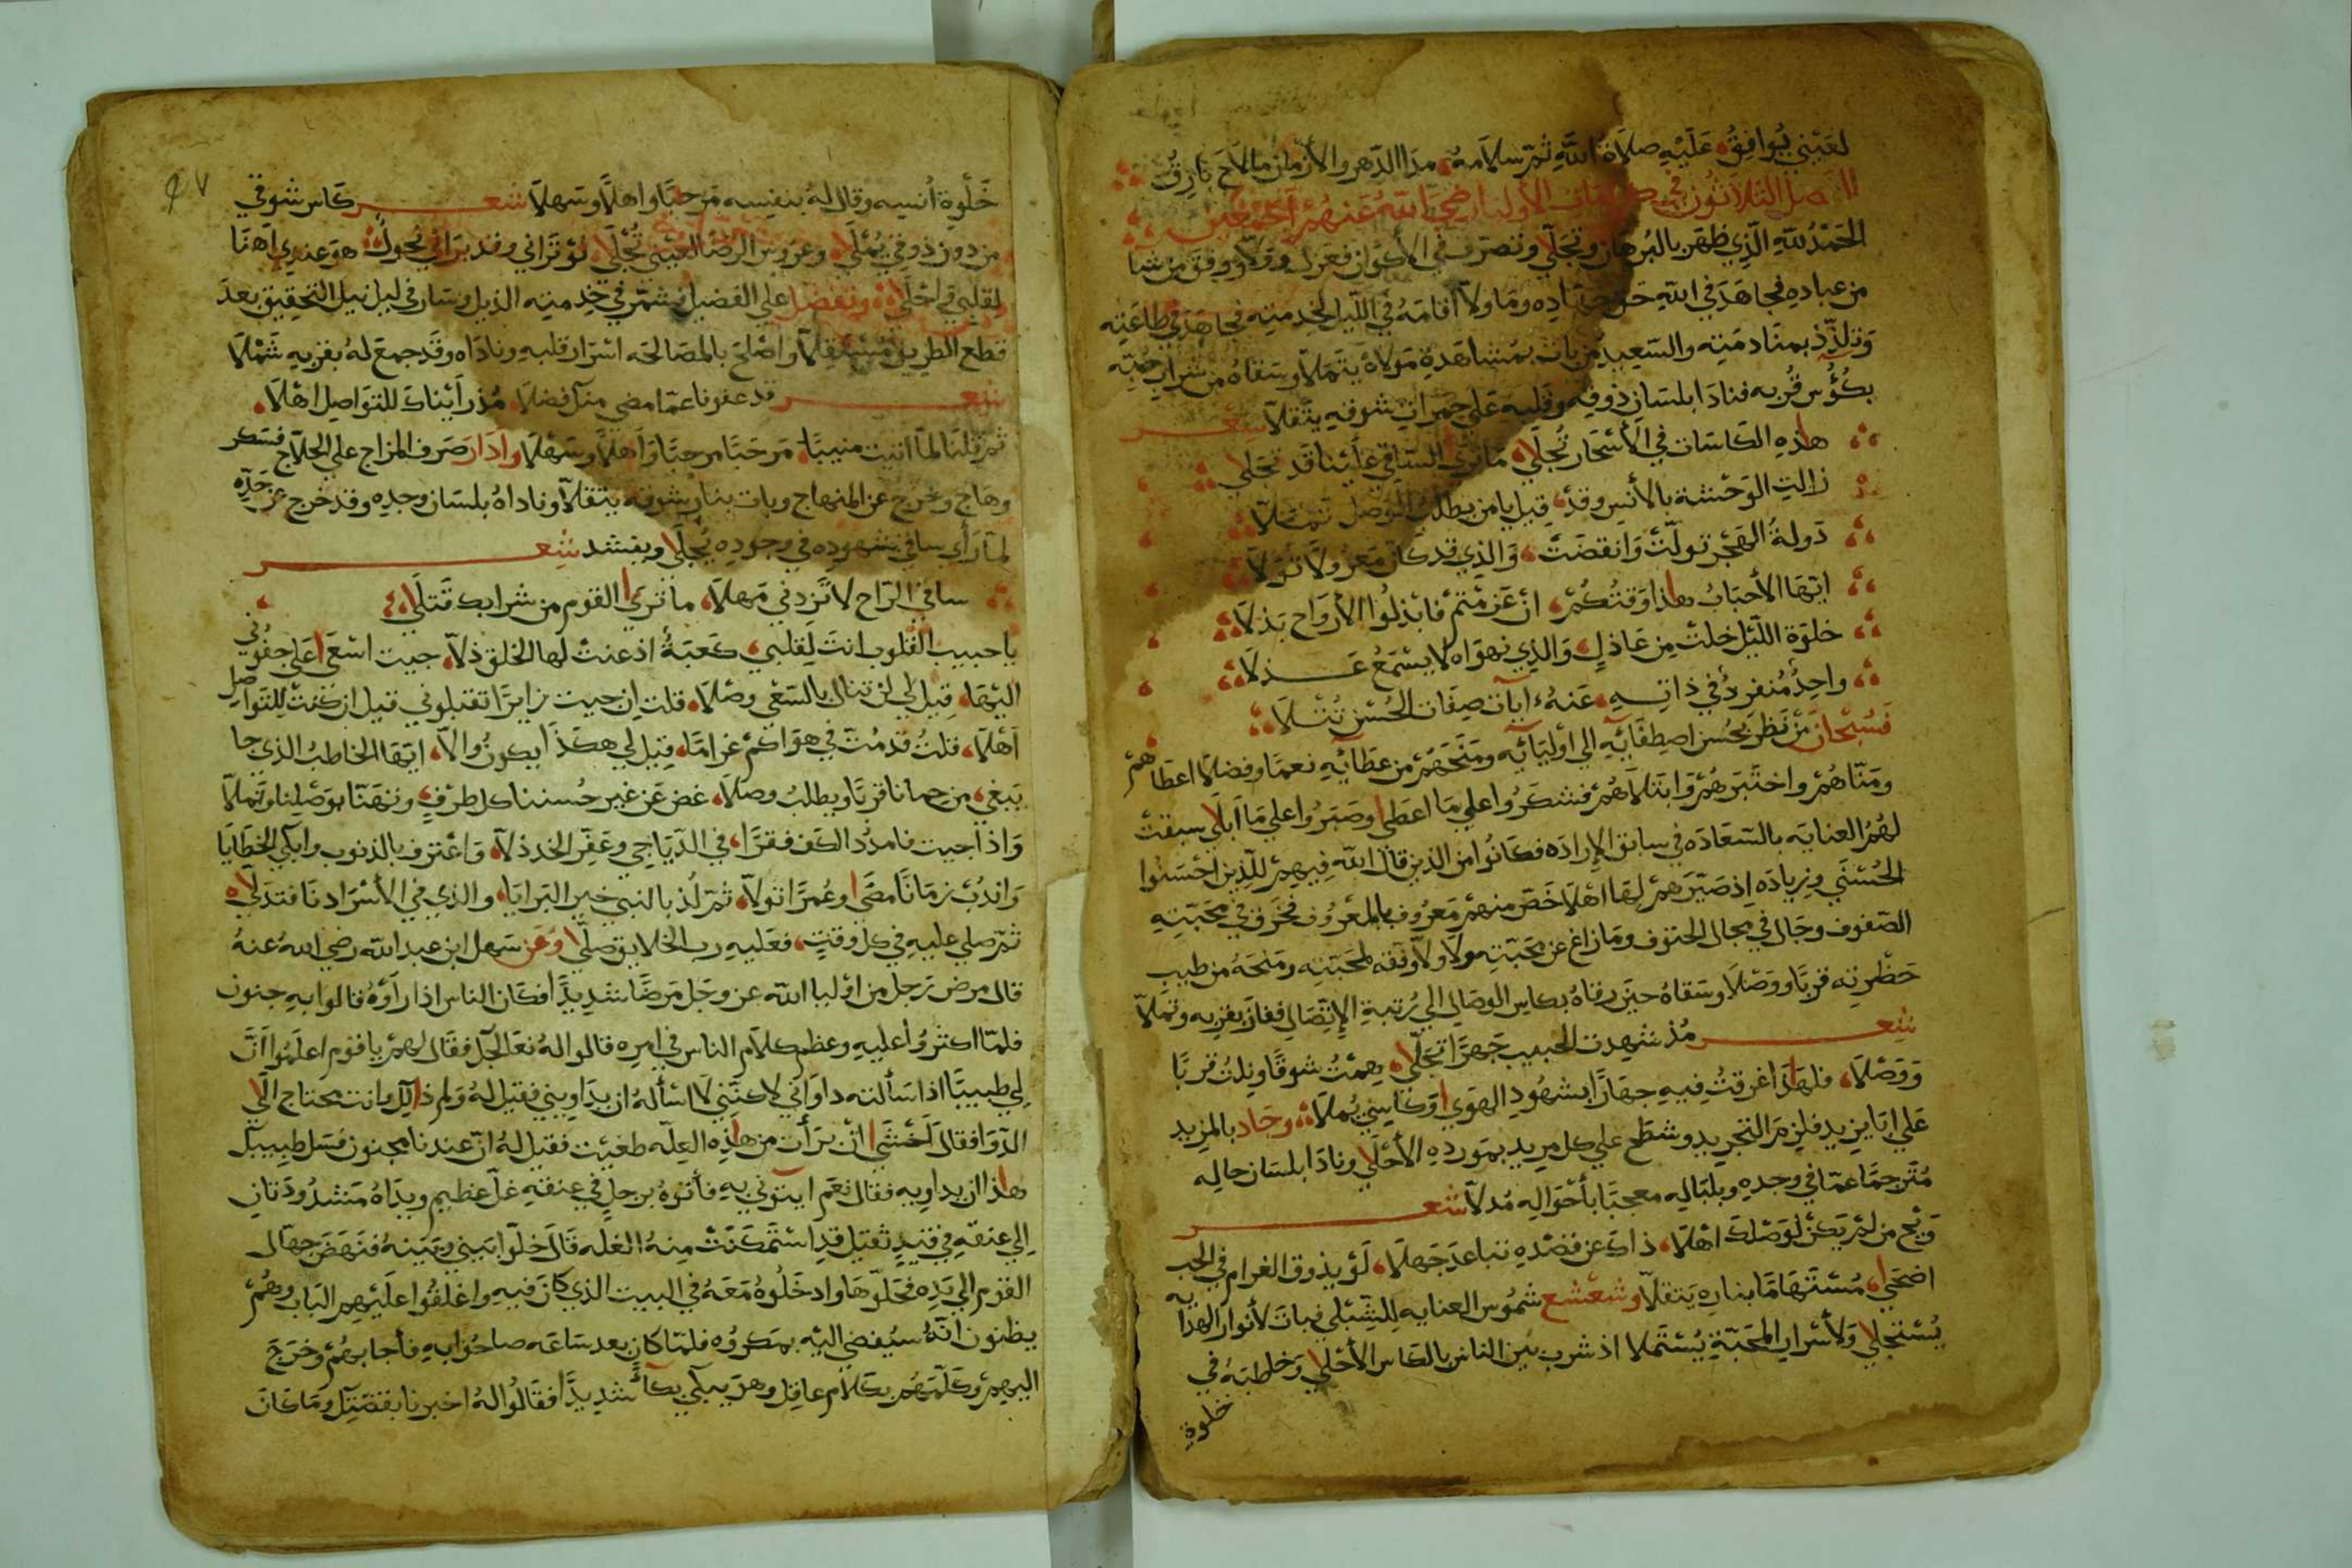 لعيني يوافق عليه صلاة الله ثم سلامه مدا الدهر والأزمان ما لاح بارق
الفصل الثلاثون في كرامات الأوليا رضي الله عنهم أجمعين
الحمد لله الذي ظهر بالبرهان وتجلّا وتصرف في الأكوان فعزل وولّا ووفق من شآ
من عباده فجاهد في الله حق جهاده وما ولّا أقامه في الليل لخدمته فجاهد في طاعته
وتلذّذ بمنادمته والسعيد من بات بمشاهدة مولاه يتملّا وسقاه من شراب حبّه
بكؤس قربه فنادا بلسان ذوقه وقلبه على جمرات شوقه يتقلّا شعر
هاذه الكاسات في الأسحار تجلى ما ترى الساقي علينا قد تجلى
زالت الوحشة بالأنس وقد قيل يا من يطلب الوصل تملّا
دولة الهجر تولّت وانقضت والذي قد كان معزولا تولّا
ايّها الأحباب هاذا وقتكم ان عزمتم فابذلوا الأرواح بذلا
خلوة الليل خلت من عاذل والذي نهواه لا يسمع عذلا
واحد منفرد في ذاته عنه ايات صفات الحسن تتلا
فسبحان من نظر بحسن اصطفائه إلي أوليائه ومنحهم من عطائه نعما وفضلا اعطاهم
ومنّاهم واختبرهم وابتلاهم فشكروا علي ما اعطى وصبروا علي ما أبلى سبقت
لهم العنايه بالسعاده في سابق الإراده فكانوا من الذين قال الله فيهم للذين احسنوا
الحسنى وزياده إذ صيّرهم لها اهلا خص منهم معروف بالمعروف فخرق في محبّته
الصفوف وجال في مجال الحتوف وما زاغ عن محبّته ولا ولّا وفقه لمحبّته ومنحه من طيب
حضرته قربا ووصلا وسقاه حين رقاه بكاس الوصال إلي رتبة الإتصال ففاز بقربه وتملّا
شعر مذ شهدت الحبيب جهرا تجلّى همت شوقا ونلت قربا
ووصلا فلهاذا غرقت فيه جهارا بشهود الهوى وكاسي يملا وجاد بالمزيد
علي ابا يزيد فلزم التجريد وشطح علي كل مريد بمورده الأحلى ونادا بلسان حاله
مترجما عمّا في وجده وبلباله معجبا بأحواله مدلّا شعر
ويح من لم يكن لوصلك اهلا ذاك عن قصده تباعد جهلا لو يذوق الغرام في الحب
اضحى مستهاما بناره يتقلّا وشعشع شموس العنايه للشبلي فبات لأنوار الهدايه
يستجلي ولأسرار المحبّة يستملا اذ شرب بين الناس بالكاس الأحلى وخاطبه في
خلوة
خلوة أنسه وقال له بنفسه مرحبا واهلا وسهلا شعر كاس شوقي
من دون ذوقي يملي وعروس الرضا لعيني تجلى لو تراني وقد براني نحول هو عندي اهنا
لقلبي واحلى وتفضل علي الفضيل فشمّر في خدمته الذيل وسار في ليل نيل التحقيق بعد
قطع الطريق مستقلا واصلح بالمصالحه اسرار قلبه وناداه وقد جمع له بقربه شملا
شعر قد عفونا عمّا مضى منك فضلا مذ رأيناك للتواصل اهلا
ثم قلنا لمّا اتيت منيبا مرحبا مرحبا وأهلا وسهلا وأدار صرف المزاج علي الحلاج فسكر
وهاج وخرج عن المنهاج وبات بنار شوقه يتقلّا وناداه بلسان وجده وقد خرج عن حدّه
لمّا رأي ساقي شهوده في وجوده يجلى وينشد شعر
ساقي الرّاح لا تزدني مهلا ما ترى القوم من شرابك قتلى
يا حبيب القلوب انت لقلبي كعبة أذعنت لها الخلق ذلّا جيت اسعى على جفوني
اليها قيل لي لن تنال بالسعي وصلا قلت ان جيت زايرا تقبلوني قيل ان كنت للتواصل
أهلا قلت قدمت في هواكم غراما قيل لي هكذا يكون والّا ايّها الخاطب الذي جا
يبغي من حمانا قربا ويطلب وصلا غض عن غير حسننا كل طرف وتنهّنا بوصلنا وتملّا
واذا جيت فامدد الكف فقرا في الدّياجي وعفّر الخد ذلّا واعترف بالذنوب وابكي الخطايا
واندب زمانا مضى وعمرا تولّا ثم لُذ بالنبي خير البرايا والذي في الأسرا دنا فتدلّى
ثم صلي عليه في كل وقت فعليه رب الخلايق صلّى وعن سهل ابن عبد الله رضي الله عنه
قال مرض رجل من اوليا الله عز وجل مرضا شديدا فكان الناس اذا رأوه قالوا به جنون
فلمّا اكثروا عليه وعظم كلام الناس في امره قالوا له نعالجك فقال لهم يا قوم اعلموا انّ
لي طبيبا اذا سألته داواني لاكنّني لا اسأله ان يداويني فقيل له ولم ذالك وانت محتاج الى
الدّوا فقال اخشى انّ برأت من هاذه العلّه طغيت فقيل له انّ عندنا مجنون فسل طبيبك
هاذا ان يداويه فقال نعم ايتوني به فأتوه برجل في عنقه غلّ عظيم ويداه مشدودتان
إلي عنقه في قيد ثقيل قد استمكنت منه العلّه قال خلّوا بيني وبينه فنهض جهال
القوم الي يده فحلّوها وادخلوه معه في البيت الذي كان فيه واغلقوا عليهم الباب وهم
يظنون انّه سيفضي اليه بمكروه فلمّا كان بعد ساعه صاحوا به فأجابهم وخرج
اليهم وكلّمهم بكلام عاقل وهو يبكي بكآ شديدا فقالوا له اخبرنا بقصّتك وما كان